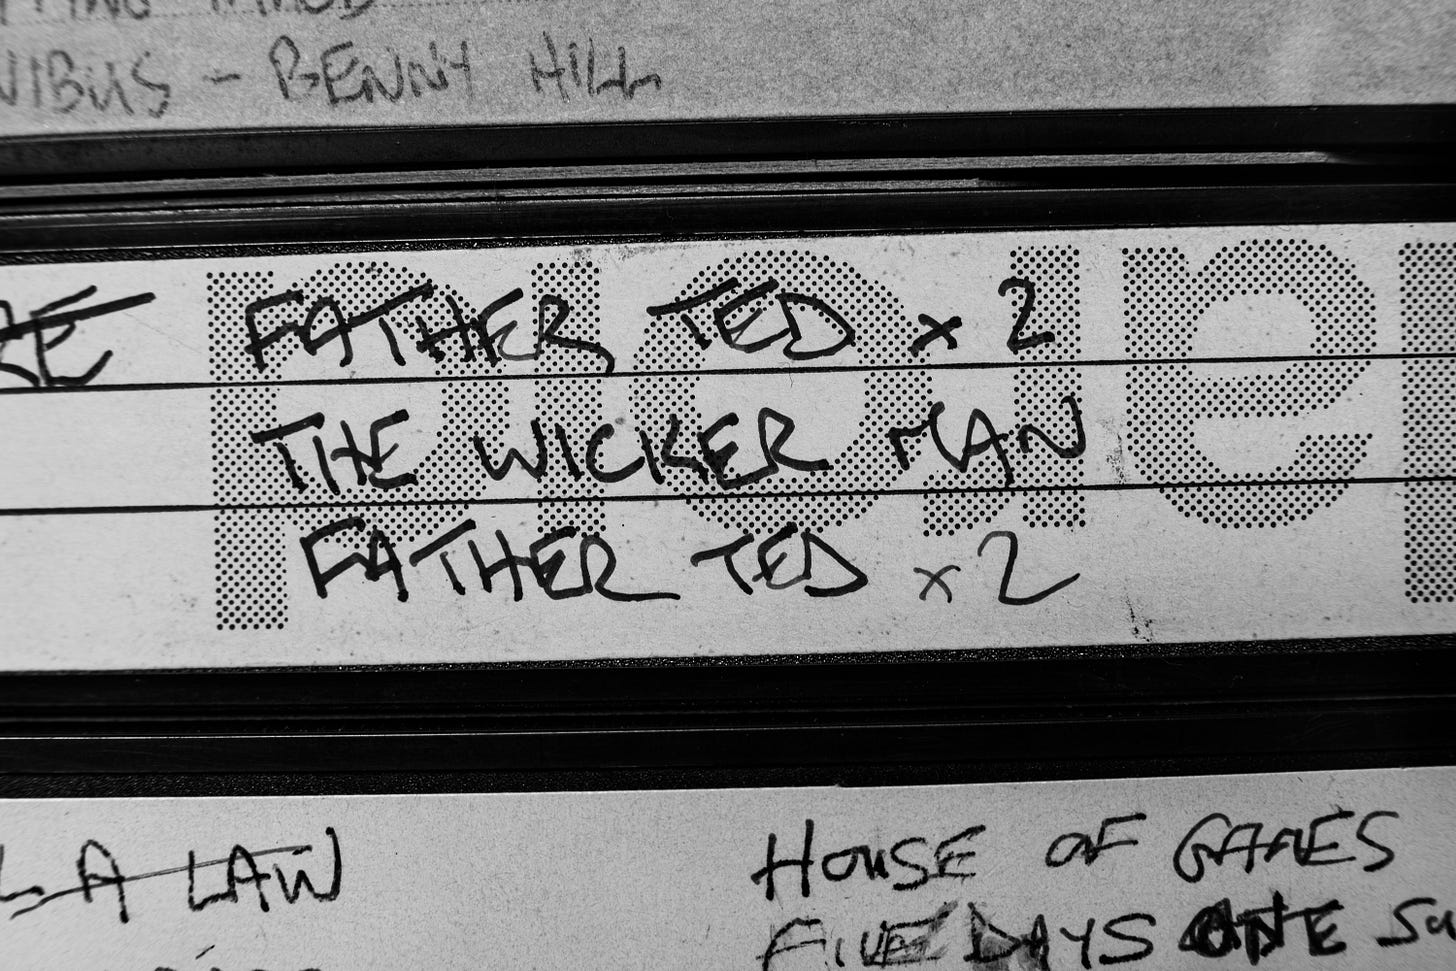 NIBUS - BENNY HILL
RE FATHER TED x 2
THE WICKER MAN
FATHER TED x 2
L A LAW
HOUSE OF GAMES
FIVE DAYS ONE SU